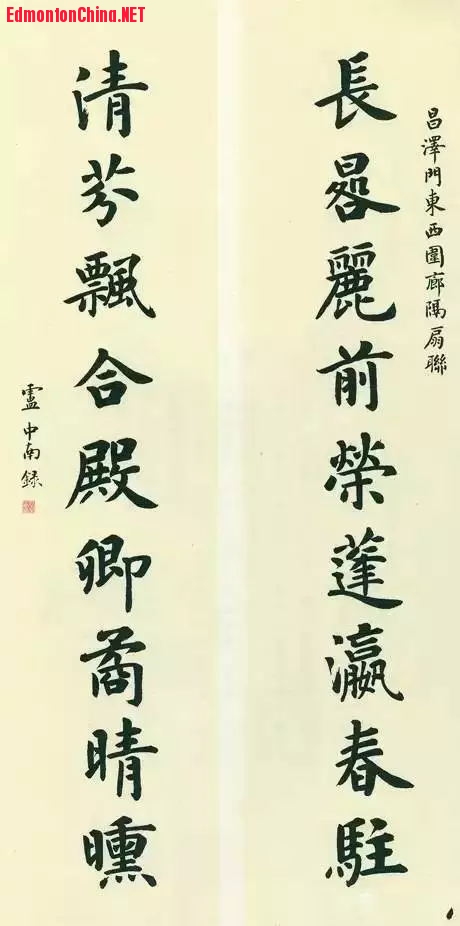 EdmontonChina.NET
昌澤門東西圍廊隅扇聯
長晷麗前榮蓬瀛春駐
清芬飄合殿卿矞晴曛
盧中南録